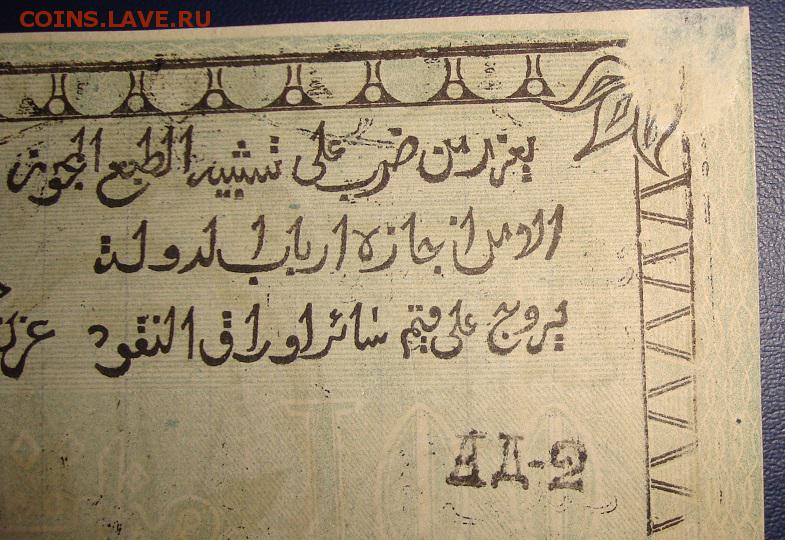 COINS.LAVE.RU
يعزر من ضرب على تشبيه الطبع المجوز
الا من اجازه ارباب الدولت
يروج على قيم سائر اوراق النقود
АД-2